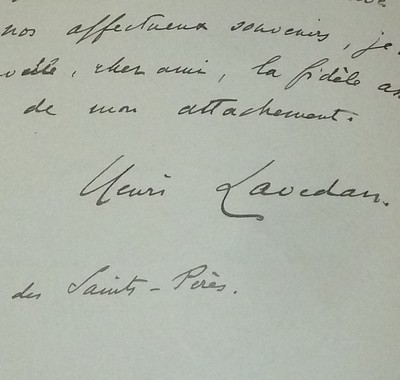 nos affectueux souvenirs, je
cher ami, la fidèle
de mon attachement.
Henri Lavedan.
des Saints-Pères.